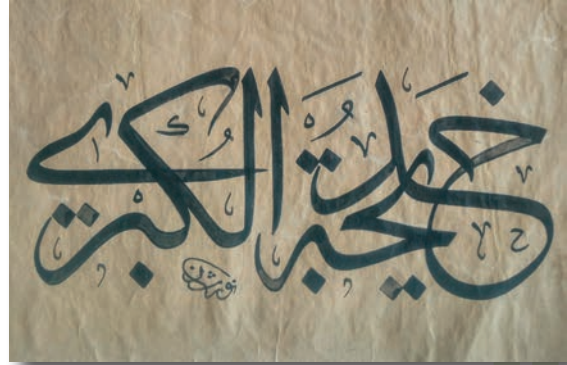 خديجة الكبرى